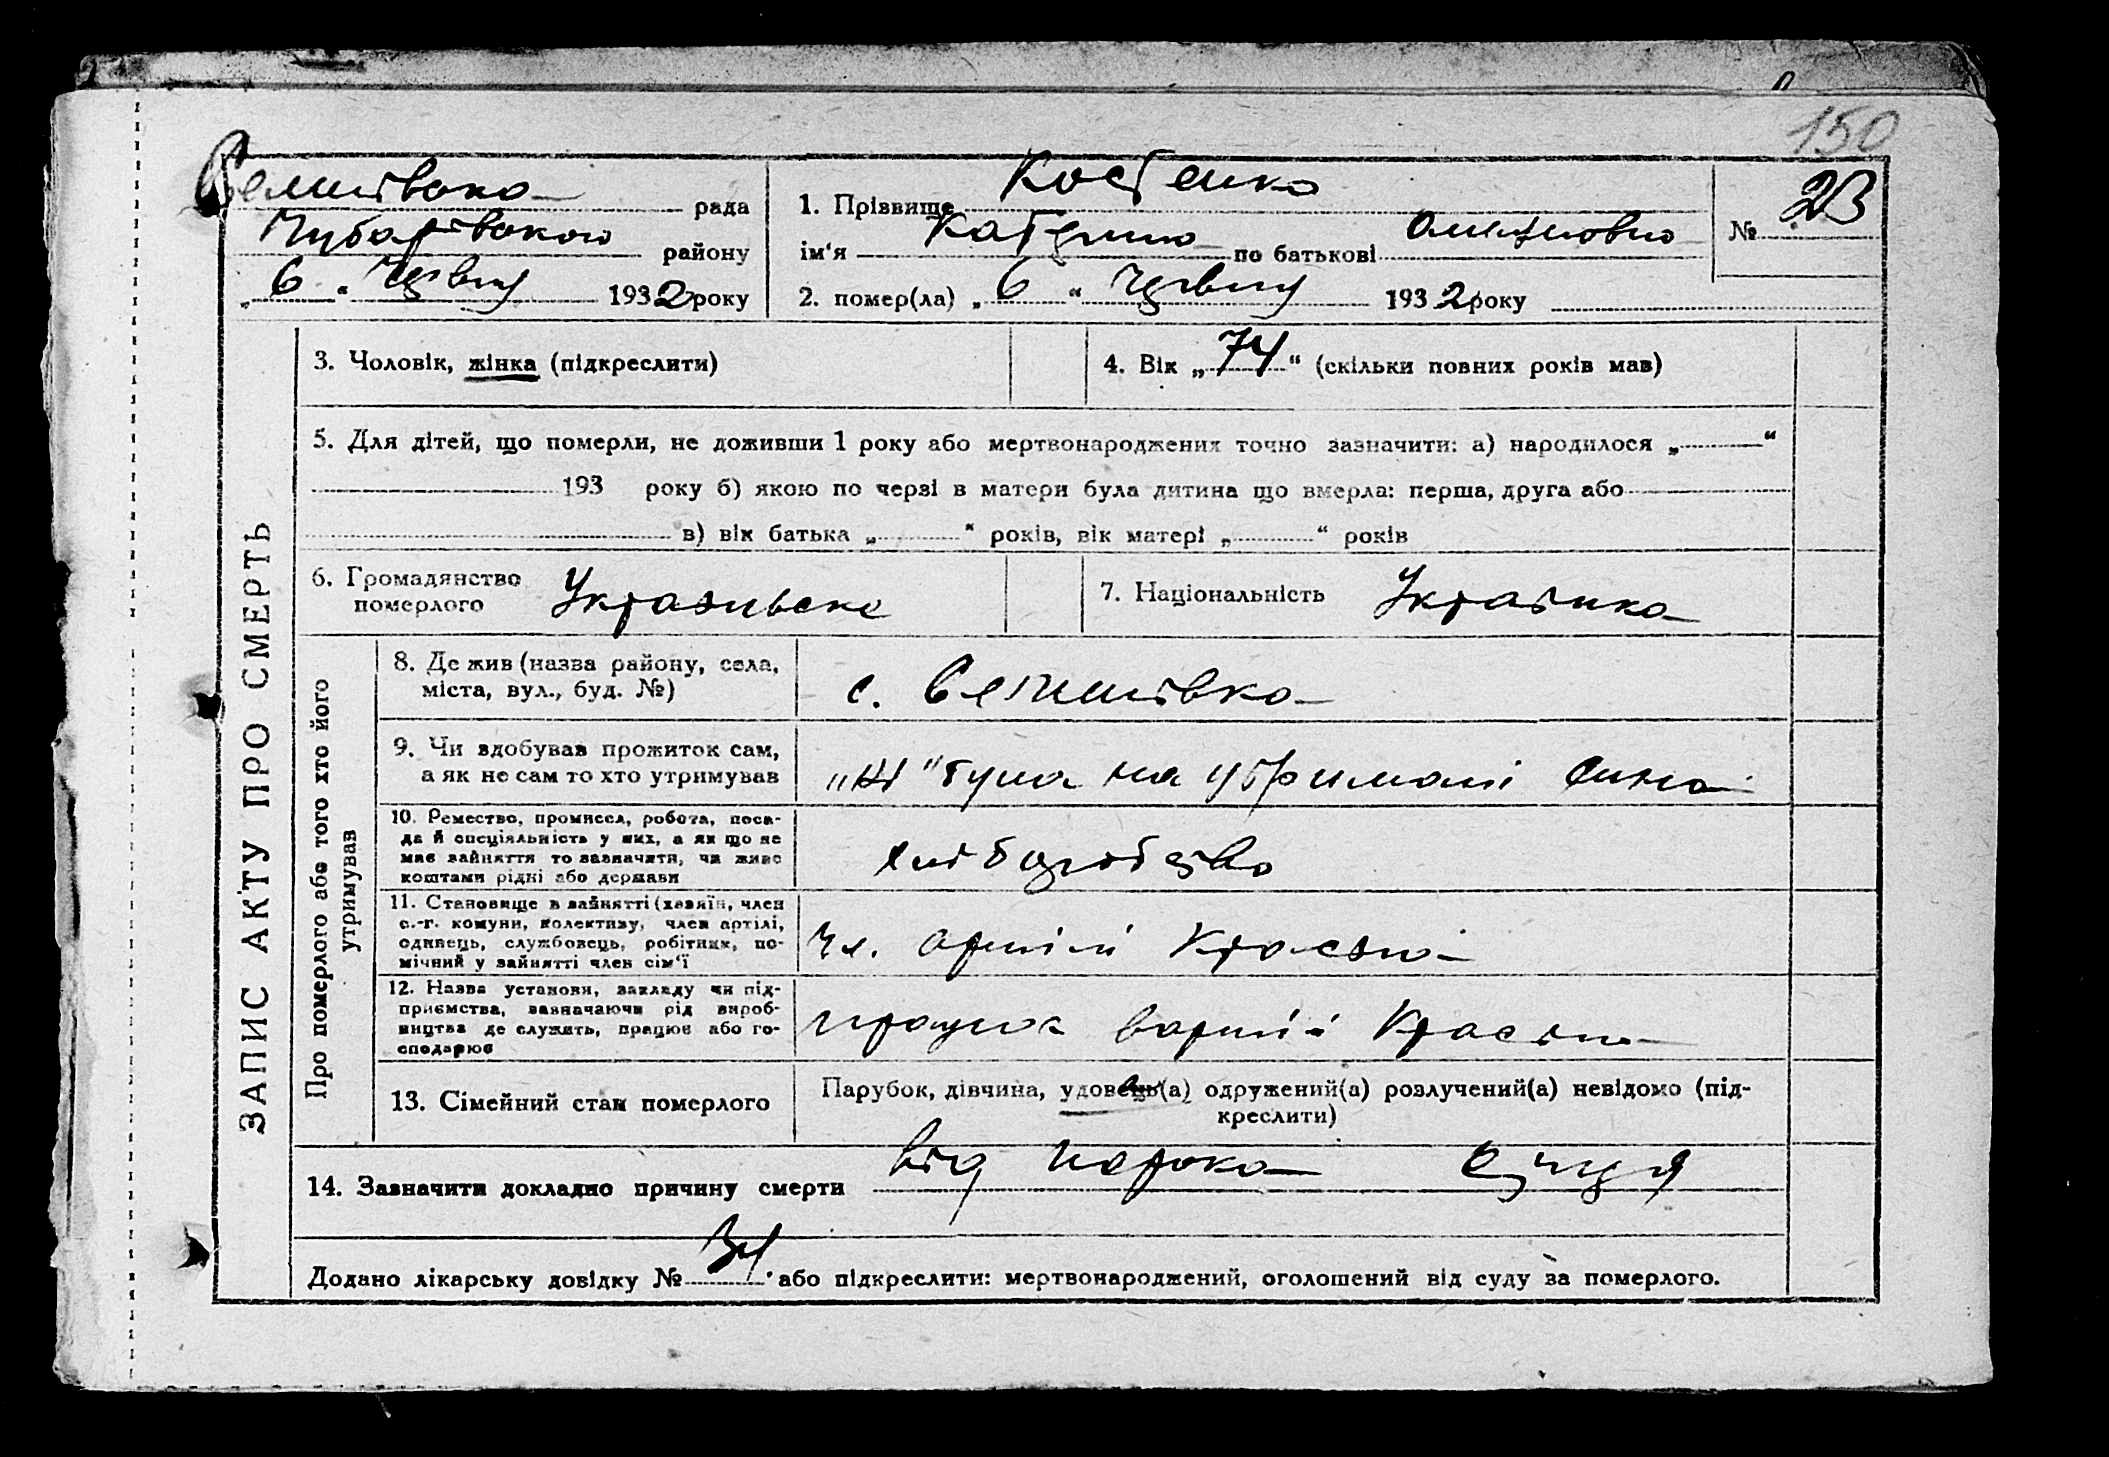 150
рада
Чубарівського району
„ 6 “ Червня 1932 року
1. Прізвище Костенко
ім'я Катерина по батькові
№ 23
2. помер(ла) „ 6 “ Червня 1932 року
ЗАПИС АКТУ ПРО СМЕРТЬ
3. Чоловік, жінка (підкреслити)
4. Вік „ 74 “ (скільки повних років мав)
5. Для дітей, що померли, не доживши 1 року або мертвонароджених точно зазначити: а) народилося „ “
193 року б) якою по черзі в матери була дитина що вмерла: перша, друга або
в) вік батька „ “ років, вік матері „ “ років
6. Громадянство померлого Українське
7. Національність Українка
Про померлого або того хто його утримував
8. Де жив (назва району, села,
міста, вул., буд. №)
с.
9. Чи здобував прожиток сам,
а як не сам то хто утримував
була на утриманні сина
10. Ремество, промисел, робота, поса-
да й спеціяльність у них, а як що не
має зайняття то зазначити, чи живе
коштами рідні або держави
хліборобство
11. Становище в зайнятті (хазяїн, член
с.-г. комуни, колективу, член артілі,
одинець, службовець, робітник, по-
мічний у зайнятті член сім'ї
Чл. артілі
12. Назва установи, закладу чи під-
приємства, зазначаючи рід вироб-
ництва де служить, працює або го-
сподарює
працює в артілі
13. Сімейний стан померлого
Парубок, дівчина, удовець(а) одружений(а) розлучений(а) невідомо (під-
креслити)
14. Зазначити докладно причину смерти від порока серця
Додано лікарську довідку № 34 або підкреслити: мертвонароджений, оголошений від суду за померлого.